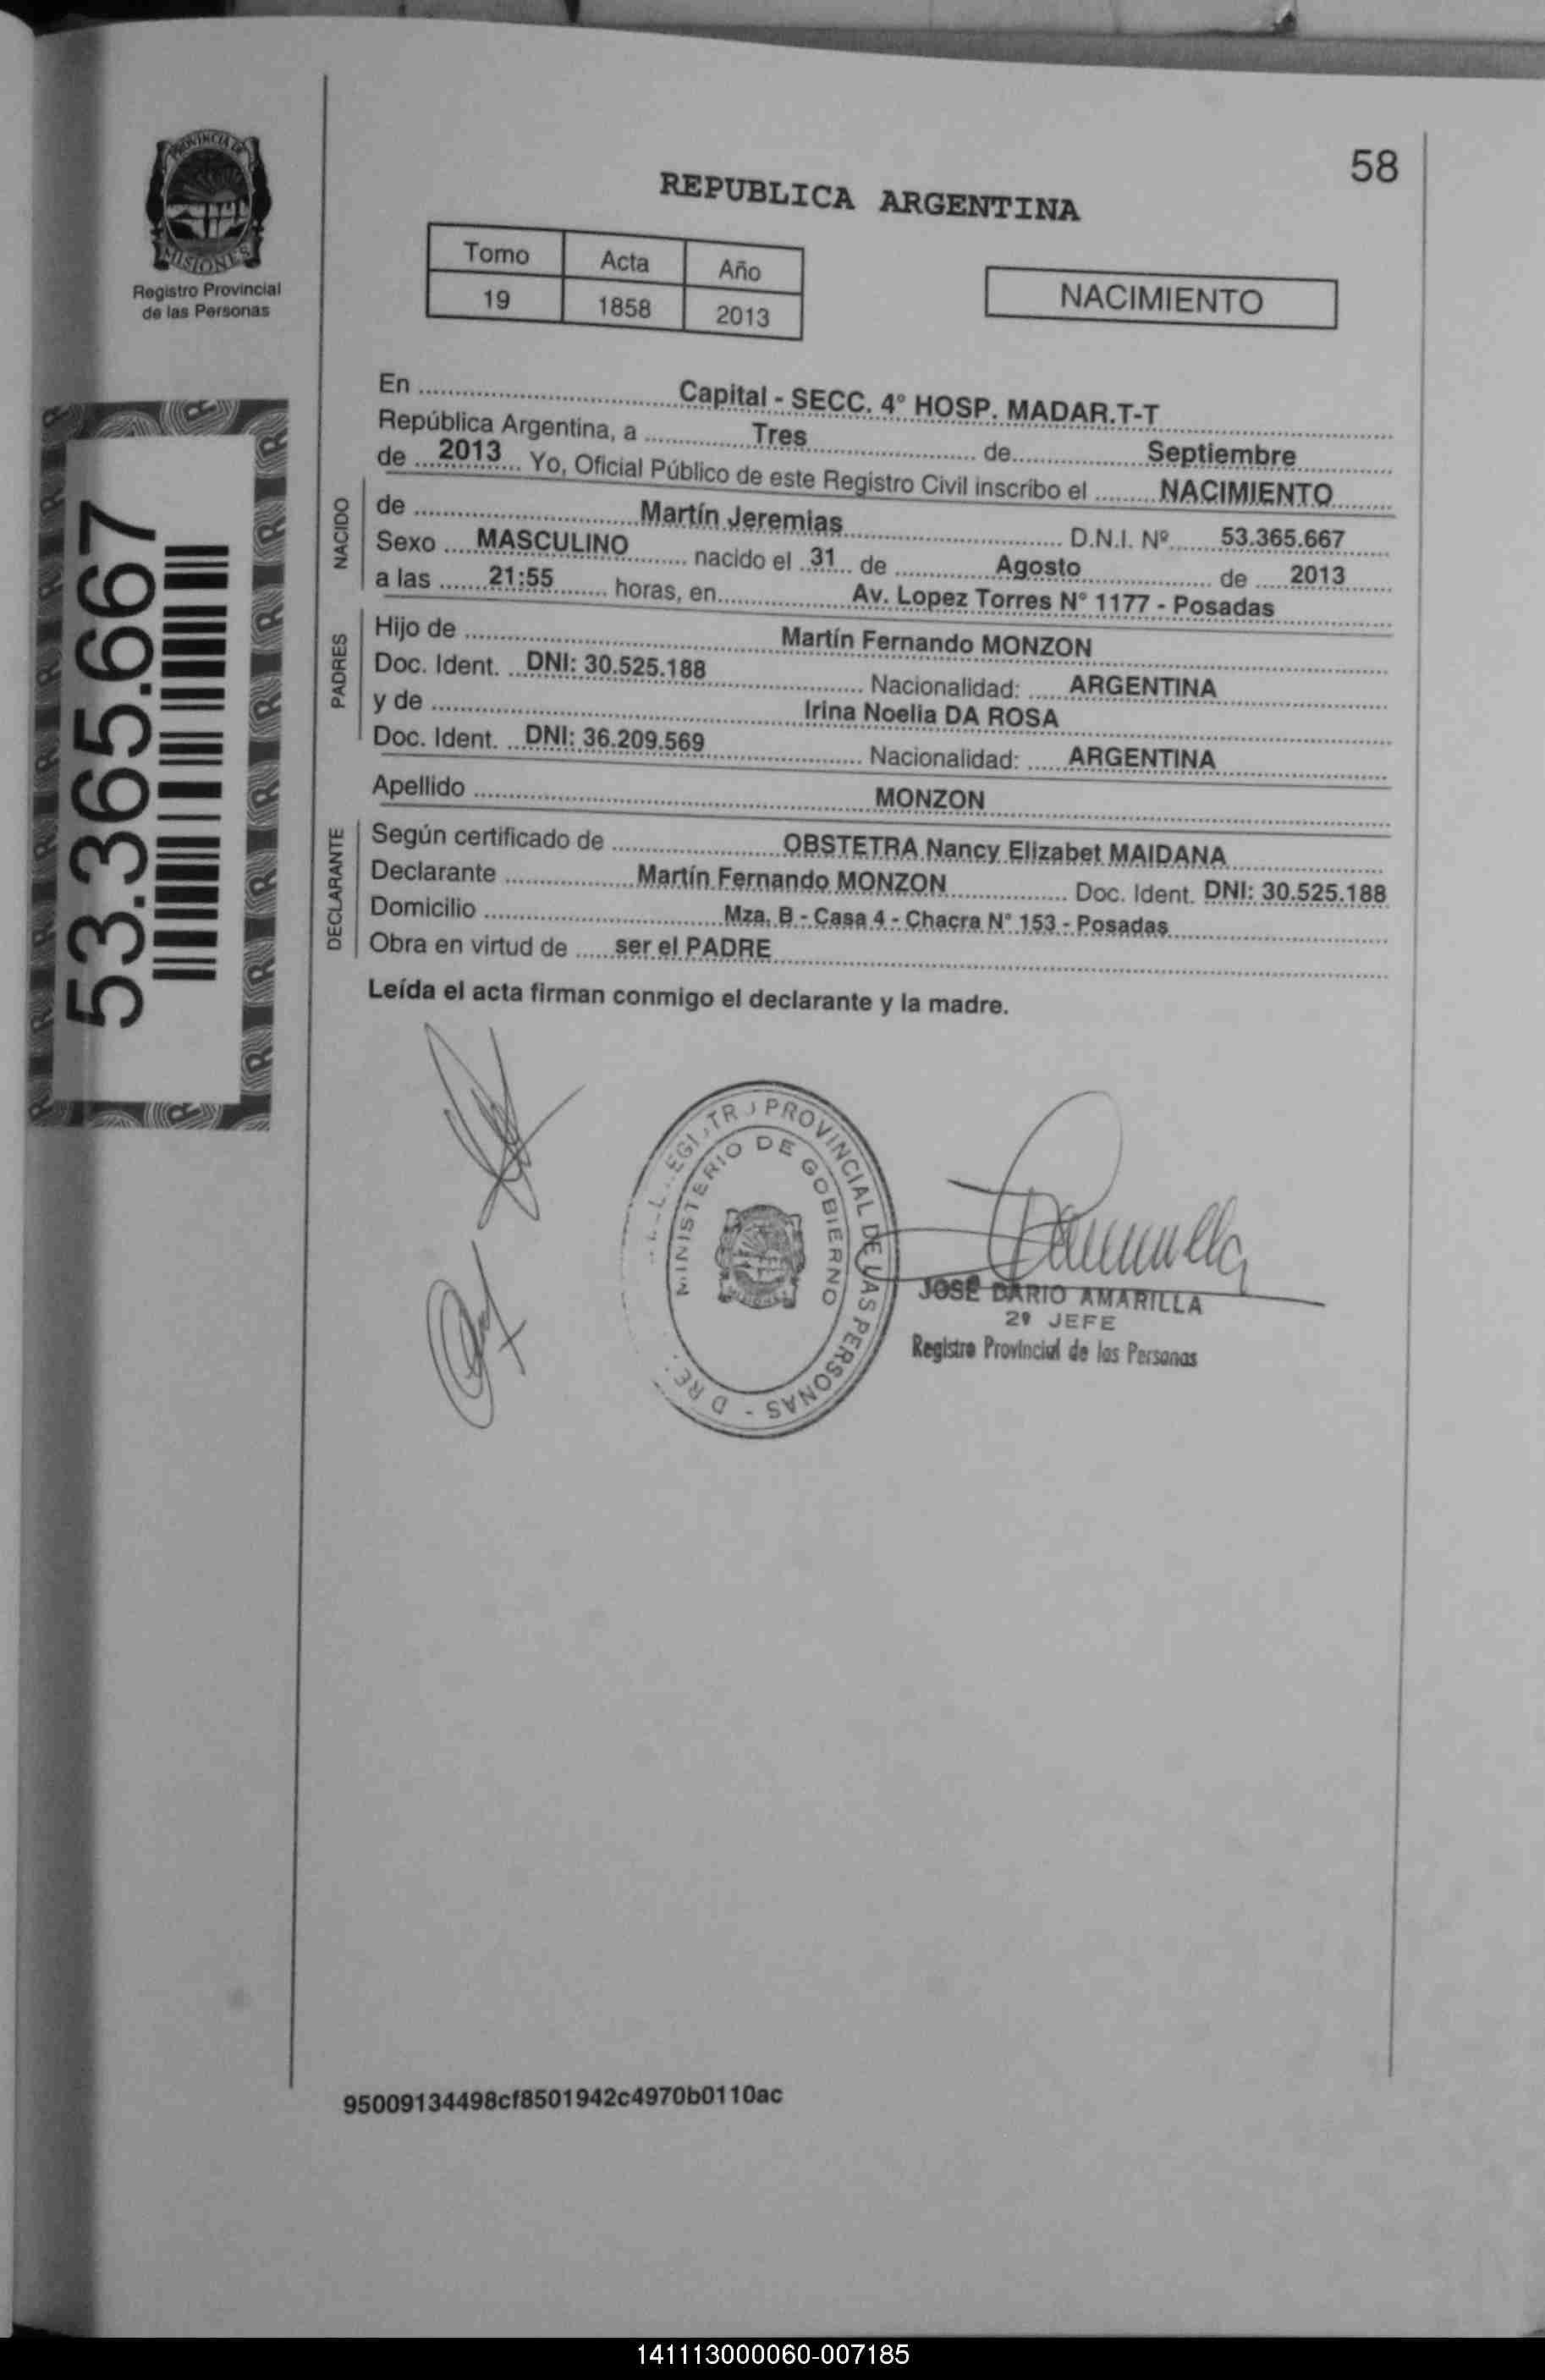 58
PROVINCIA DE
MISIONES
Registro Provincial
de las Personas
REPUBLICA ARGENTINA
Tomo Acta Año
19 1858 2013
NACIMIENTO
53.365.667
En Capital - SECC. 4° HOSP. MADAR.T-T
República Argentina, a Tres de Septiembre
de 2013 Yo, Oficial Público de este Registro Civil inscribo el NACIMIENTO
NACIDO
de Martín Jeremias D.N.I. Nº 53.365.667
Sexo MASCULINO nacido el 31 de Agosto de 2013
a las 21:55 horas, en Av. Lopez Torres N° 1177 - Posadas
PADRES
Hijo de Martín Fernando MONZON
Doc. Ident. DNI: 30.525.188 Nacionalidad: ARGENTINA
y de Irina Noelia DA ROSA
Doc. Ident. DNI: 36.209.569 Nacionalidad: ARGENTINA
Apellido MONZON
DECLARANTE
Según certificado de OBSTETRA Nancy Elizabet MAIDANA
Declarante Martín Fernando MONZON Doc. Ident. DNI: 30.525.188
Domicilio Mza. B - Casa 4 - Chacra N° 153 - Posadas
Obra en virtud de ser el PADRE
Leída el acta firman conmigo el declarante y la madre.
PROVINCIAL DE LAS PERSONAS
MINISTERIO DE GOBIERNO
JOSÉ DARIO AMARILLA
2º JEFE
Registro Provincial de las Personas
95009134498cf8501942c4970b0110ac
141113000060-007185